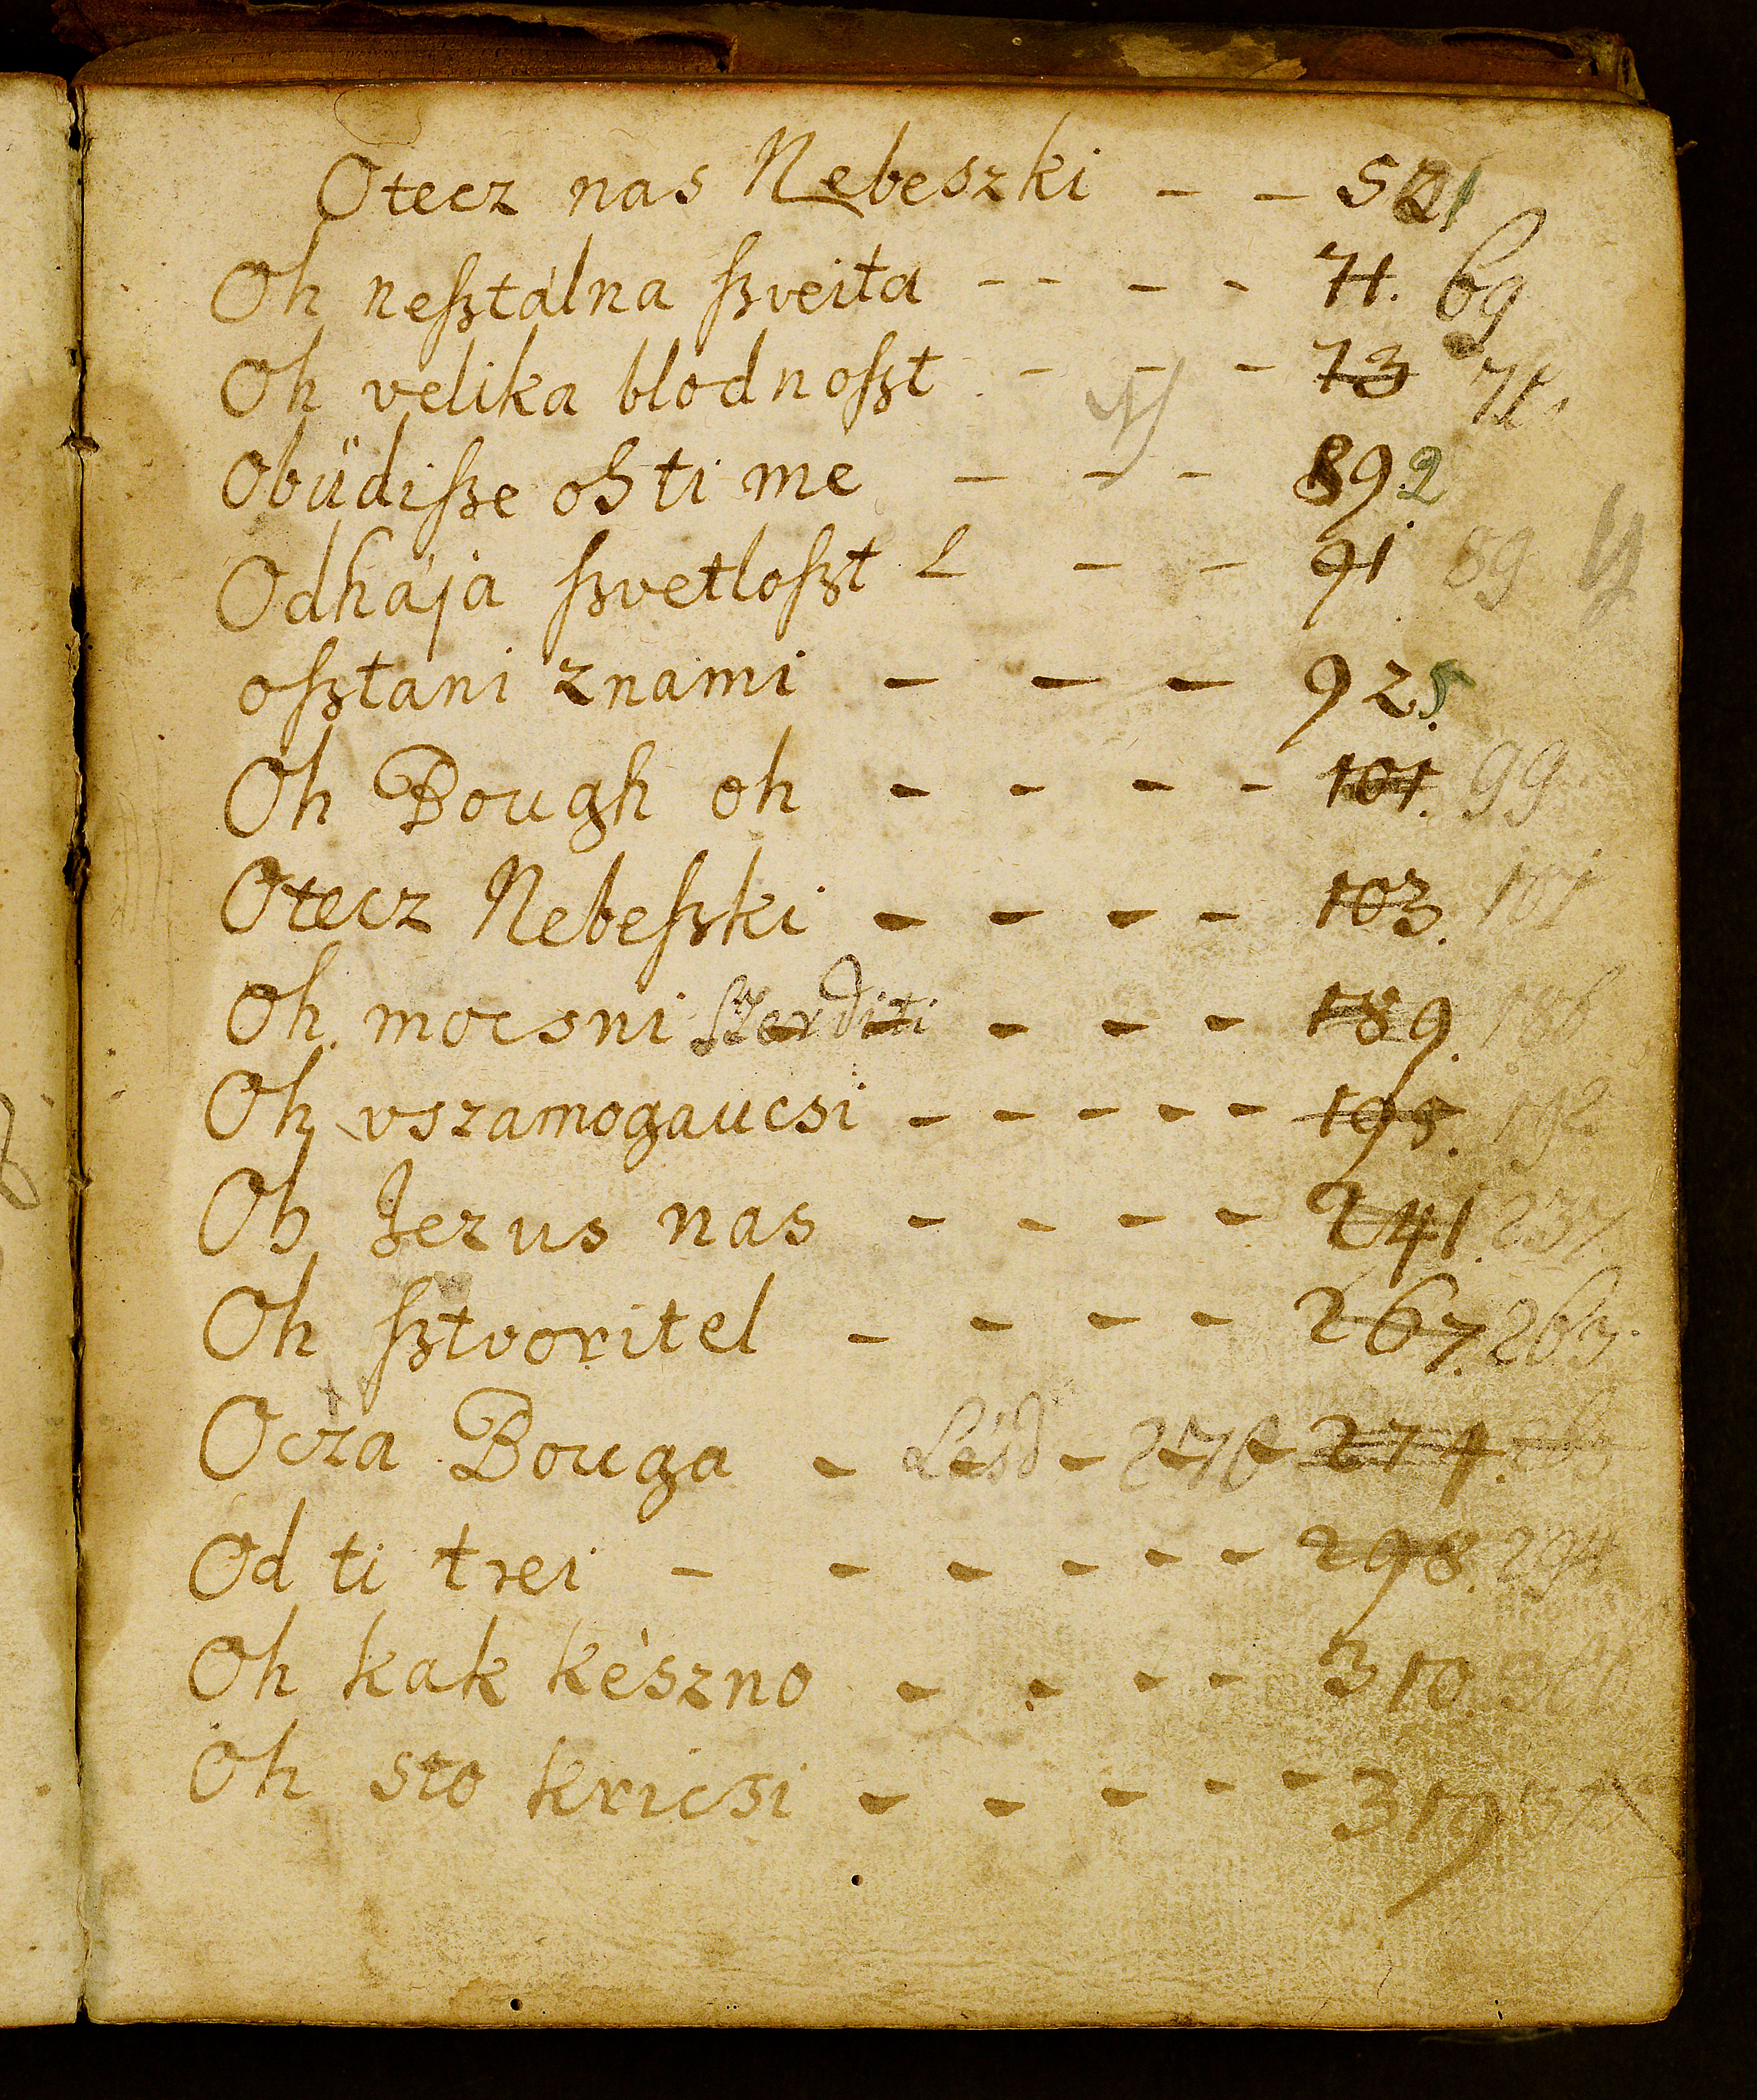 Otecz nas Nebeszki - - 521
Oh neſztálna ſzveita - - - - 71. 69
Oh velika blodnoſzt - - - 73 71.
Obüdiſze oh ti me - - - 89.2
Odhája ſzvetloſzt - - 91 89
oſztani znami - - - 92.5
Oh Bough oh - - - - 101. 99
Otecz Nebeſzki - - - - 103. 101
Oh mocsni Szerditi - - - 189. 186
Oh vszamogaucsi - - - - - 195. 192
Oh Jezus nas - - - - 241. 237.
Oh ſztvoritel - - - - 267. 263.
Ocza Bouga - - - - 276 274.
Od ti trei - - - - - - 298. 294
Oh kak kèszno - - - - 310.
Oh sto kricsi - - - - - 319